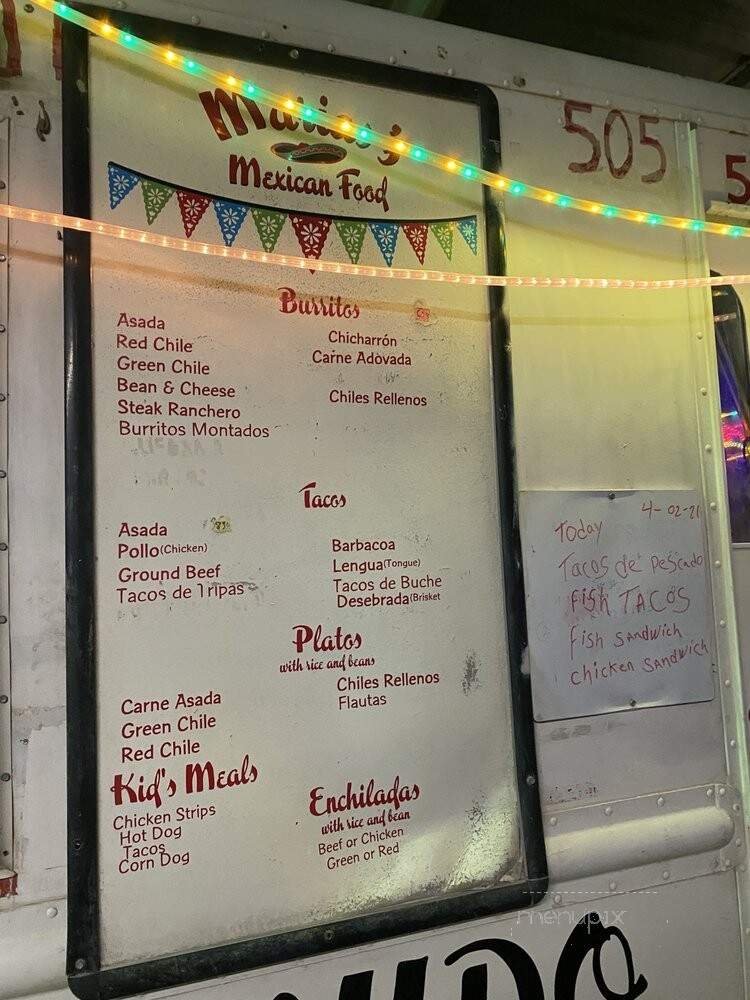 Maria's
Mexican Food
505
5
Burritos
Asada
Red Chile
Green Chile
Bean & Cheese
Steak Ranchero
Burritos Montados
Chicharrón
Carne Adovada
Chiles Rellenos
Tacos
Asada
Pollo (Chicken)
Ground Beef
Tacos de Tripas
Barbacoa
Lengua (Tongue)
Tacos de Buche
Desebrada (Brisket
Platos
with rice and beans
Carne Asada
Green Chile
Red Chile
Chiles Rellenos
Flautas
Kid's Meals
Chicken Strips
Hot Dog
Tacos
Corn Dog
Enchiladas
with rice and bean
Beef or Chicken
Green or Red
Today 4-02-21
Tacos de Pescado
fish TACOS
fish Sandwich
chicken Sandwich
menupix